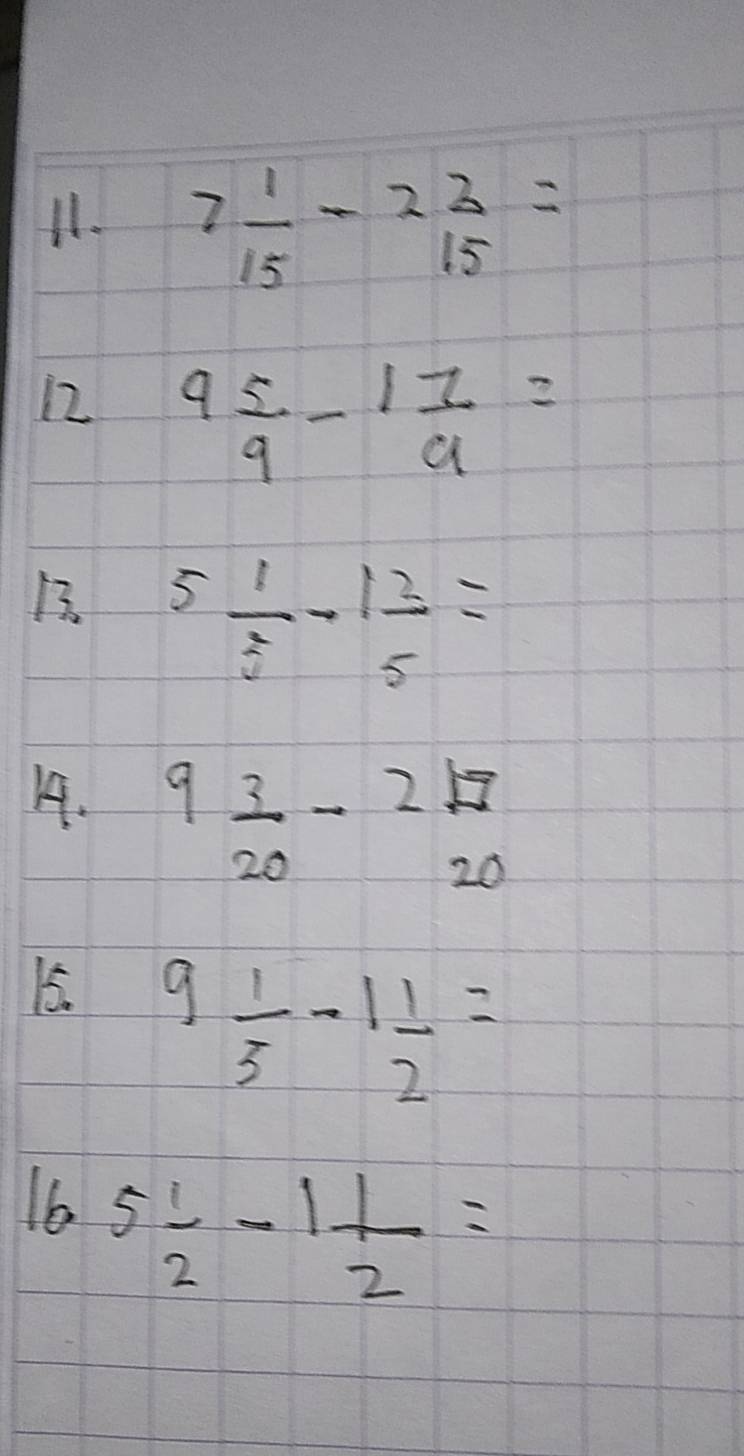 11. 7 1/15 - 2 2/15 =
12 9 5/9 - 1 7/9 =
13. 5 1/5 - 1 2/5 =
14. 9 3/20 - 2 17/20
15. 9 1/5 - 1 1/2 =
16 5 1/2 - 1 1/2 =